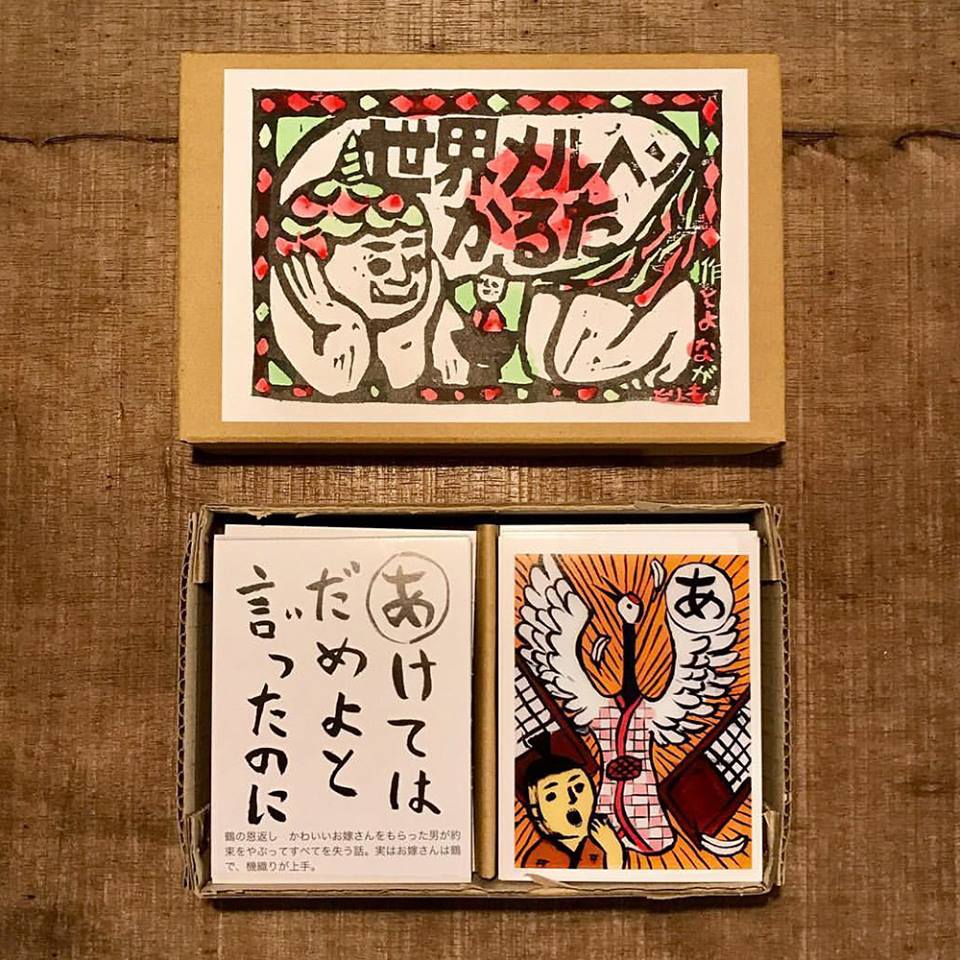 世界メルヘン
かるた
作 とよなが
もりと
あけては
だめよと
言ったのに
鶴の恩返し　かわいいお嫁さんをもらった男が約
束をやぶってすべてを失う話。実はお嫁さんは鶴
で、機織りが上手。
あ